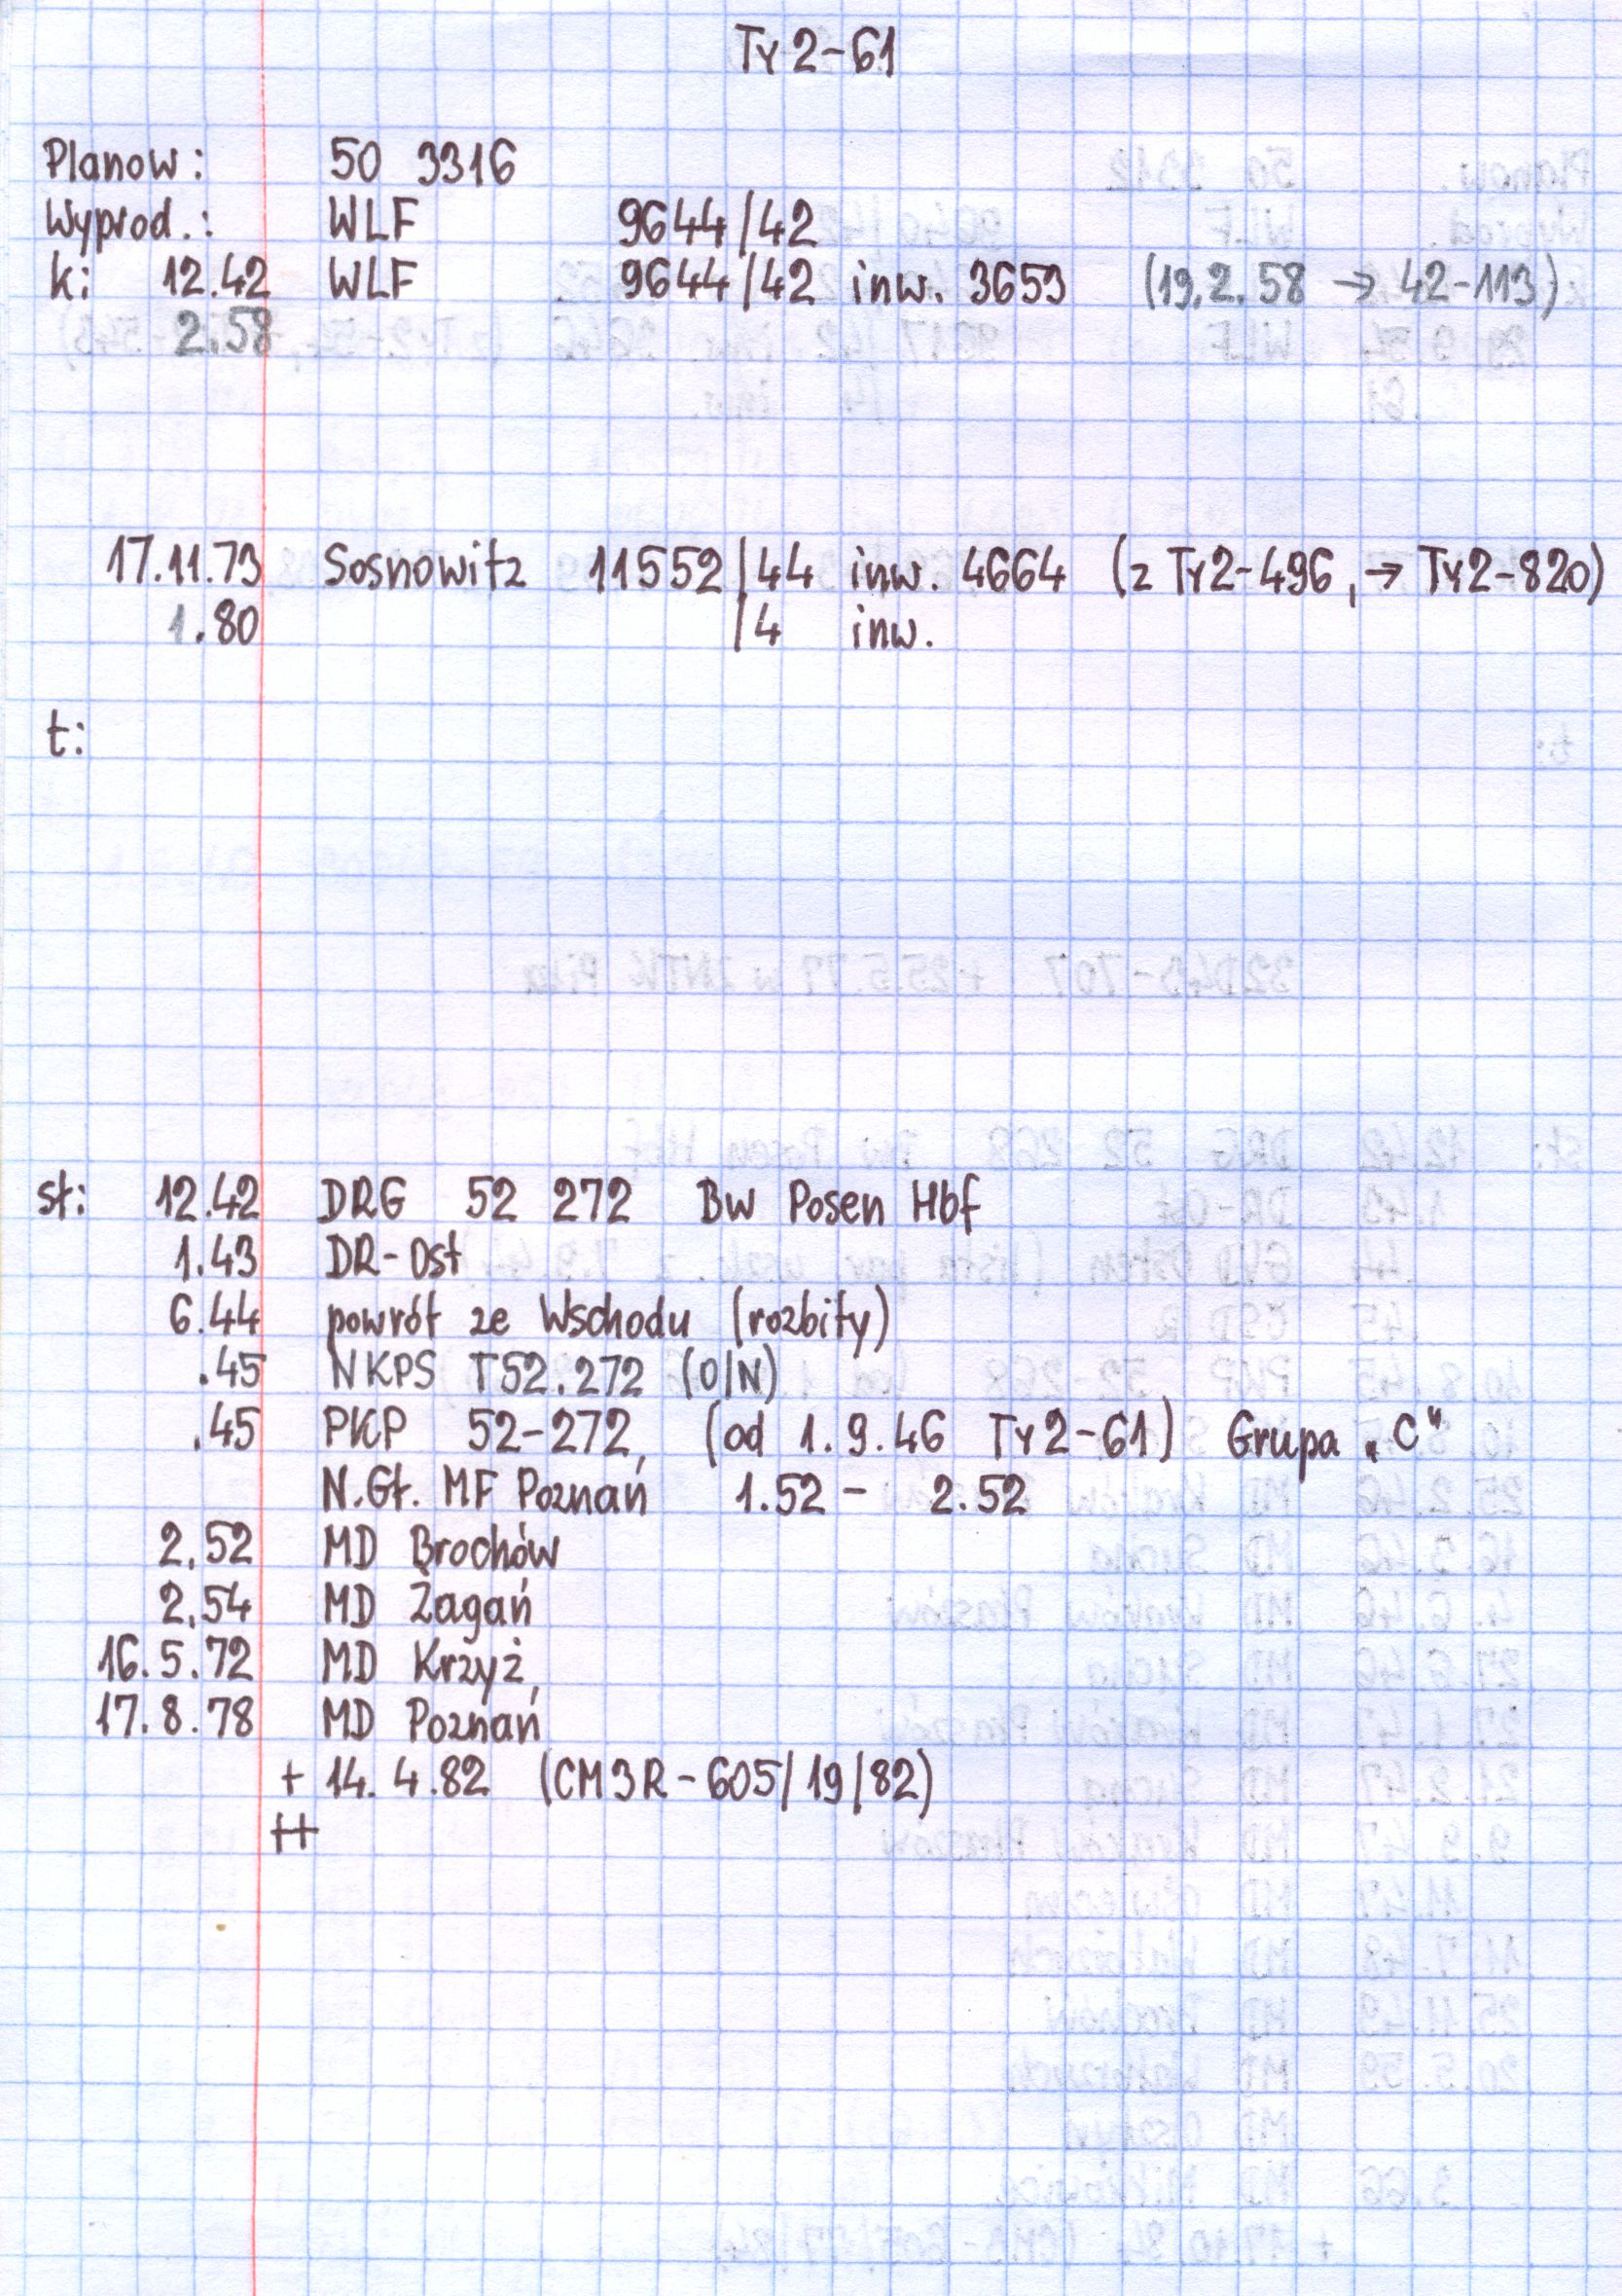 Ty2-61
Planow: 50 3316
Wyprod.: WLF 9644/42
k: 12.42 WLF 9644/42 inw. 3653 (19.2.58 → 42-113)
2.58
17.11.73 Sosnowitz 11552/44 inw. 4664 (z Ty2-496, → Ty2-820)
1.80 /4 inw.
t:
st: 12.42 DRG 52 272 Bw Posen Hbf
1.43 DR-Ost
6.44 powrót ze Wschodu (rozbity)
.45 NKPS T52.272 (O/N)
.45 PKP 52-272, (od 1.9.46 Ty2-61) Grupa „C"
N.Gł. MF Poznań 1.52 - 2.52
2.52 MD Brochów
2.54 MD Żagań
16.5.72 MD Krzyż
17.8.78 MD Poznań
+ 14.4.82 (CM3R-605/19/82)
++